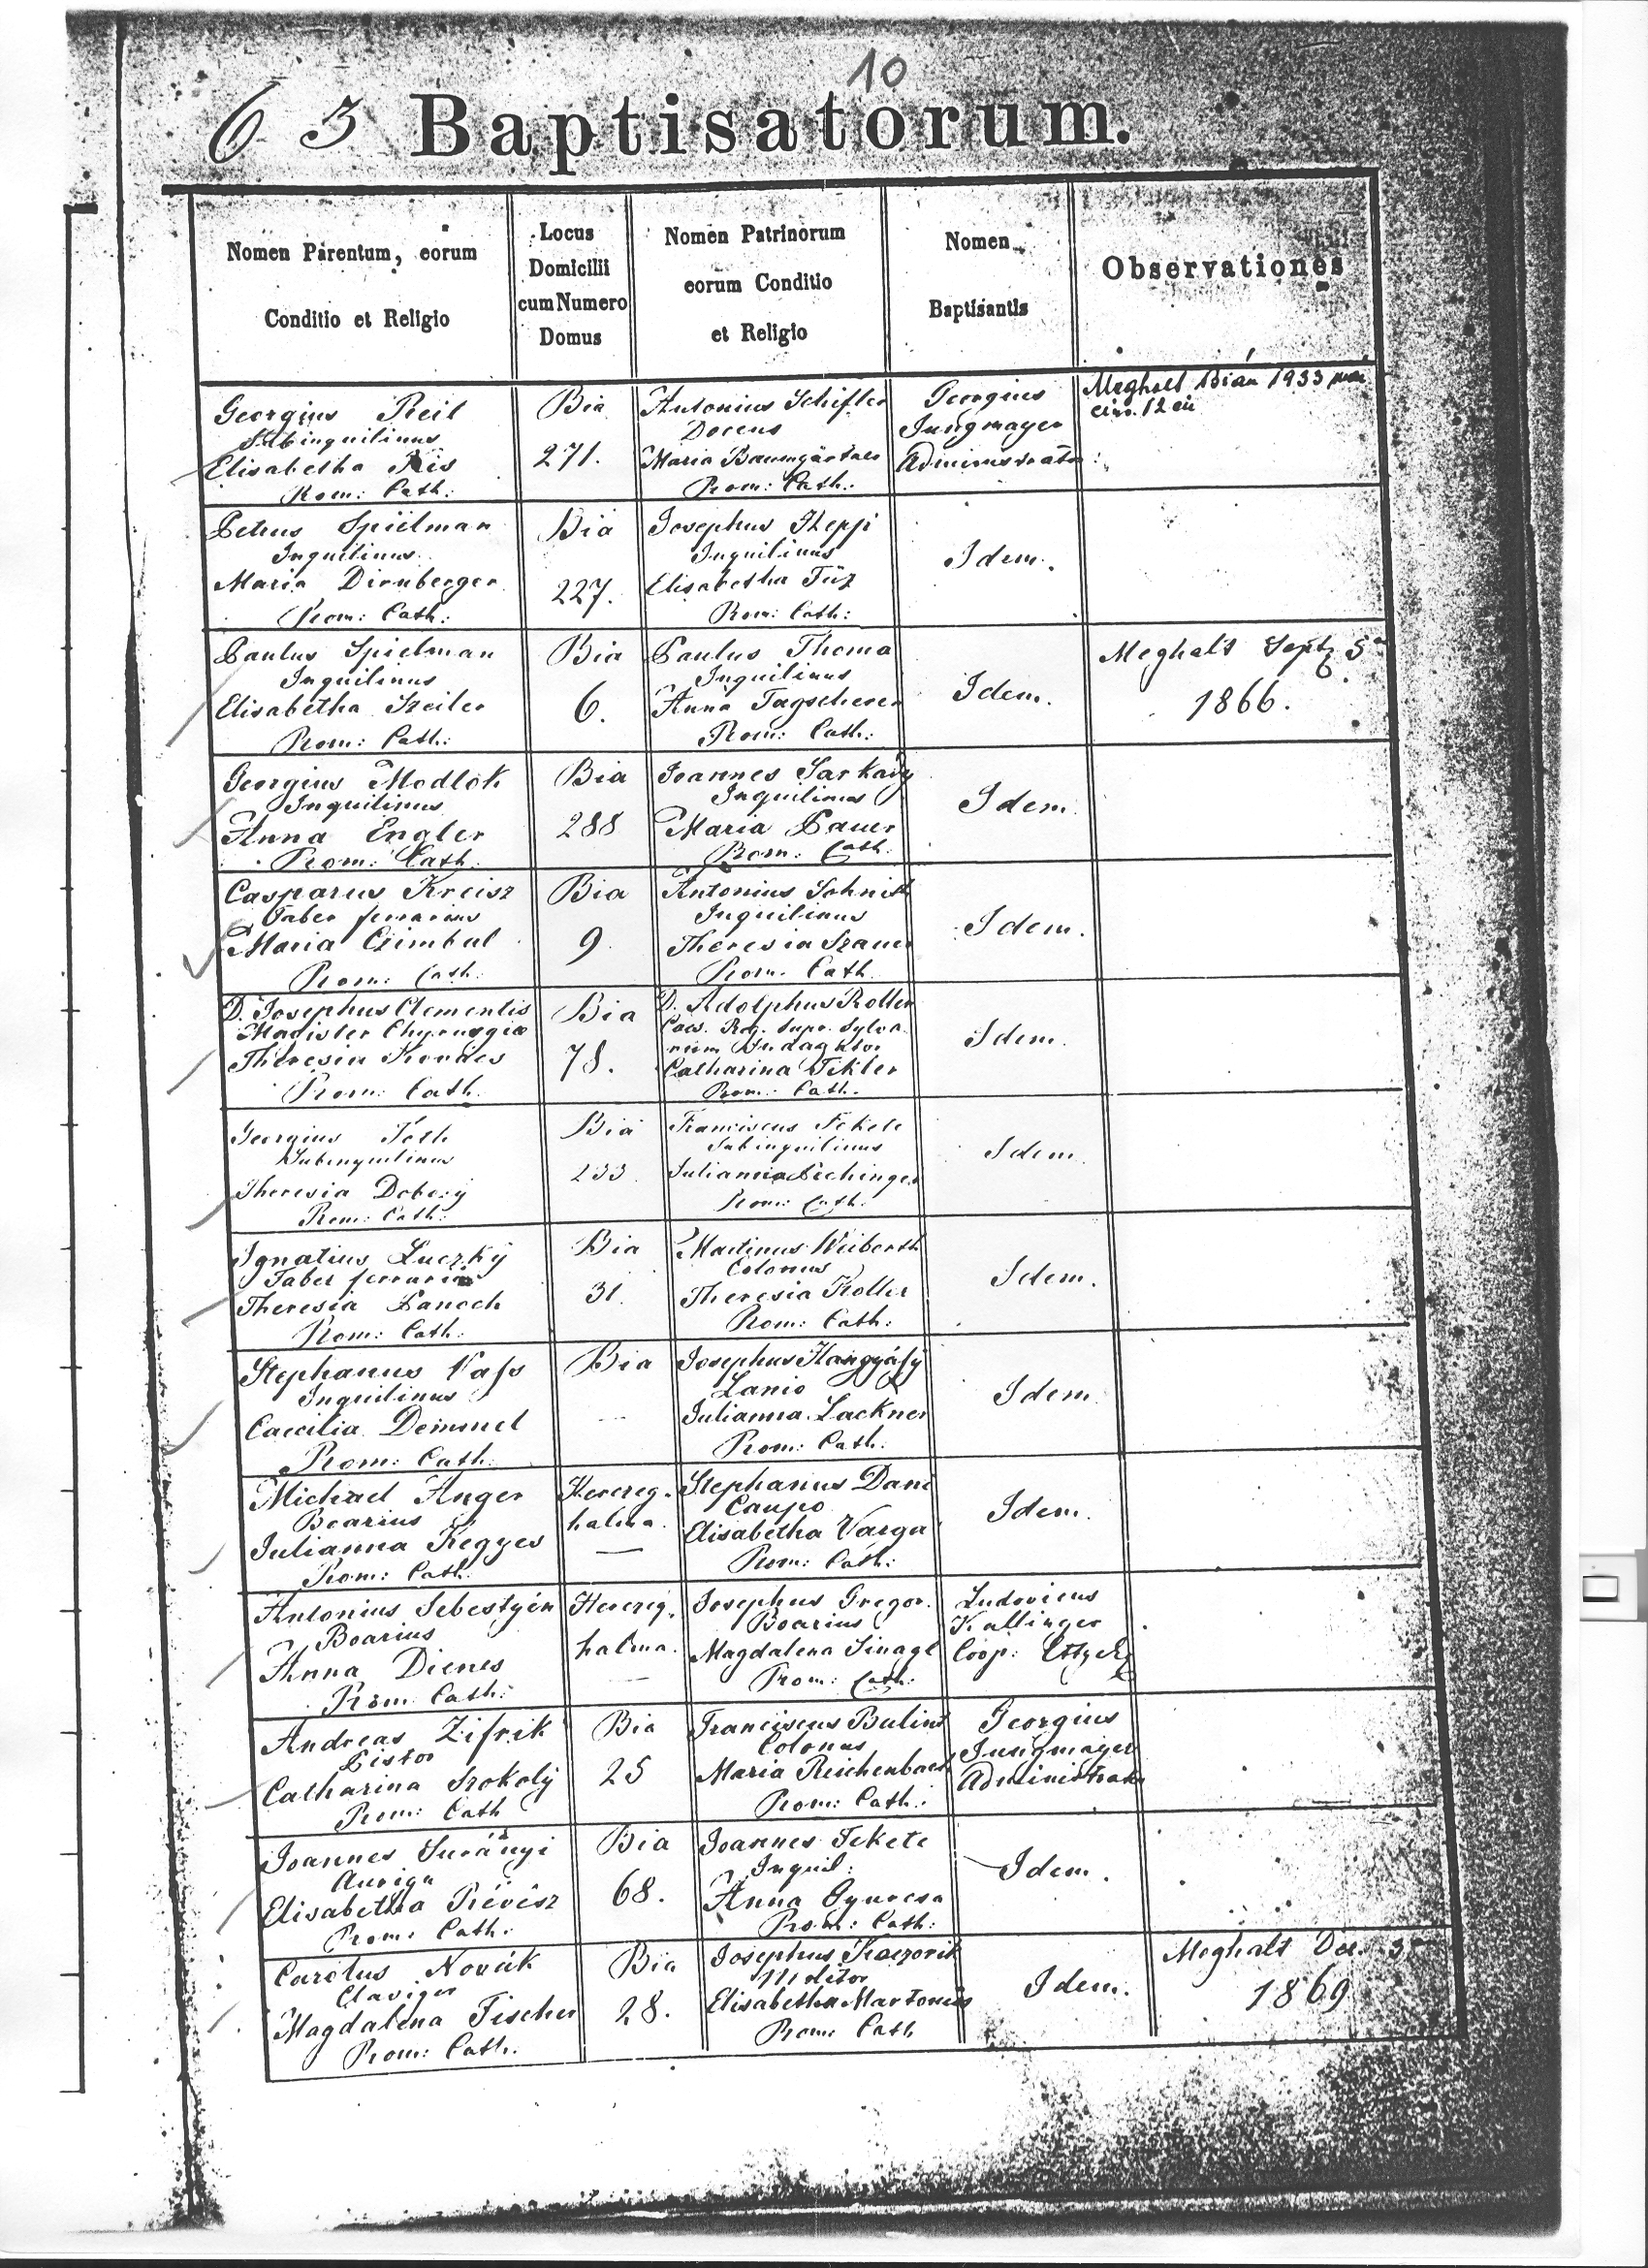 10
63 Baptisatorum.
Nomen Parentum, eorum
Conditio et Religio
Locus
Domicilii
cum Numero
Domus
Nomen Patrinorum
eorum Conditio
et Religio
Nomen
Baptisantis
Observationes
Georgius Reil
Subinquilinus
Elisabetha Kis
Rom: Cath:
Bia
271.
Antonius Schifler
Docens
Maria Baumgärtner
Rom: Cath:
Georgius
Jungmayer
Administrator:
Meghalt Bián 1933
Petrus Spielman
Inquilinus
Maria Dirnberger
Rom: Cath:
Bia
227.
Josephus Heppi
Inquilinus
Elisabetha Füz
Rom: Cath:
Idem.
Paulus Spielman
Inquilinus
Elisabetha Szeiler
Rom: Cath:
Bia
6.
Paulus Thoma
Inquilinus
Anna Tagscherer
Rom: Cath:
Idem.
Meghalt Sept 5
1866.
Georgius Modlok
Inquilinus
Anna Engler
Rom: Cath:
Bia
288
Joannes Sarkady
Inquilinus
Maria Pauer
Rom: Cath:
Idem.
Casparus Kreisz
Faber ferrarius
Maria Czimbal
Rom: Cath:
Bia
9.
Antonius Schmidt
Inquilinus
Theresia Szauer
Rom. Cath.
Idem.
D. Josephus Clementis
Magister Chyrurgiæ
Theresia Kovács
Rom: Cath.
Bia
78.
D. Adolphus Roller
Caes. Reg. Supr. Sylva-
rum Indagator
Catharina Fikler
Rom: Cath.
Idem.
Georgius Toth
Subinquilinus
Theresia Doborj
Rom: Cath:
Bia
233.
Franciscus Fekete
Subinquilinus
Julianna Aichinger
Rom: Cath.
Idem.
Ignatius Luczky
Faber ferrarius
Theresia Hanoch
Rom: Cath:
Bia
31.
Martinus Weiberth
Colonus
Theresia Koller
Rom: Cath:
Idem.
Stephanus Vass
Inquilinus
Caecilia Demmel
Rom: Cath:
Bia
Josephus Hangyásy
Lanio
Julianna Lackner
Rom: Cath:
Idem.
Michael Anger
Boarius
Julianna Kegyes
Rom: Cath:
Herczeg-
halma.
Stephanus Dani
Caupo
Elisabetha Varga
Rom: Cath:
Idem.
Antonius Sebestyén
Boarius
Anna Dienes
Rom: Cath:
Herczeg.
halma.
Josephus Gregor.
Boarius
Magdalena Sinagl
Rom: Cath:
Ludovicus
Kallinger
Coop: Etyek
Andreas Zifrik
Pistor
Catharina Szokoly
Rom: Cath
Bia
25
Franciscus Balint
Colonus
Maria Reichenbach
Rom: Cath:
Georgius
Jungmayer
Administrator
Joannes Surányi
Auriga
Elisabetha Révész
Rom: Cath:
Bia
68.
Joannes Fekete
Inquil:
Anna Gyurcsa
Rom: Cath:
Idem.
Carolus Novák
Claviger
Magdalena Fischer
Rom: Cath.
Bia
28.
Josephus Kaczorik
Molitor
Elisabetha Martonis
Rom: Cath
Idem.
Meghalt Dec. 3
1869